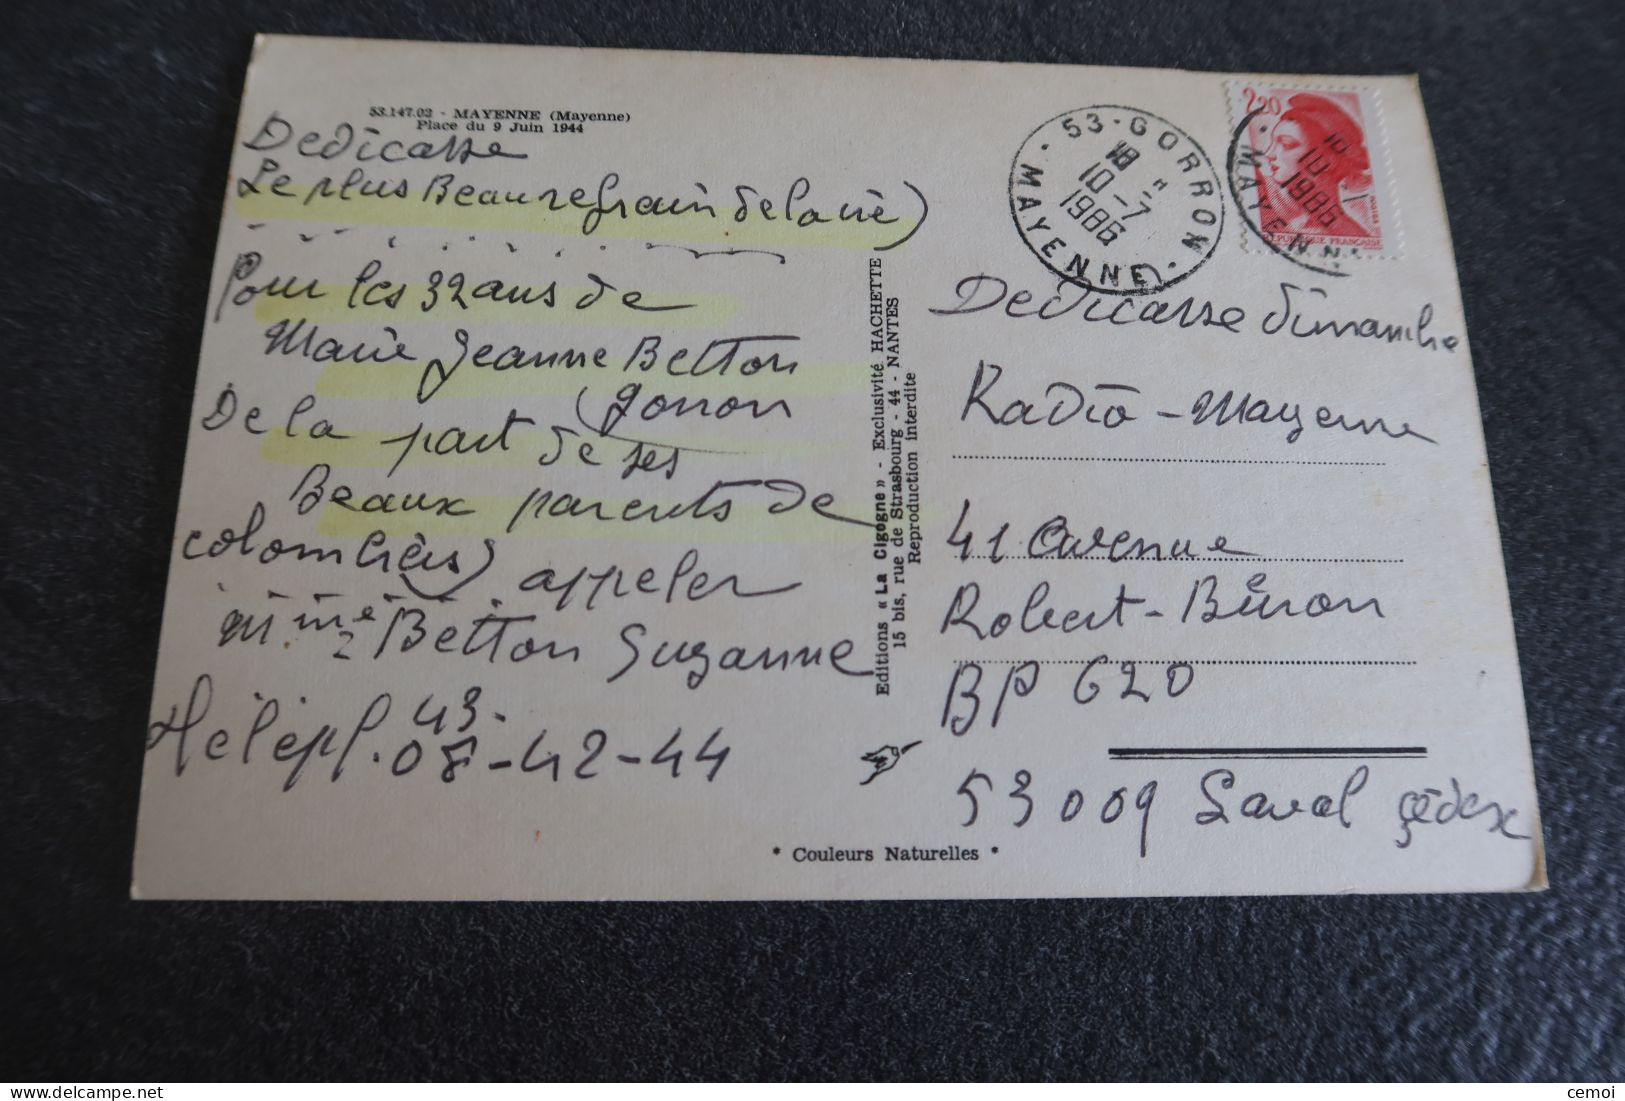 53.147.02 - MAYENNE (Mayenne)
Place du 9 Juin 1944
Dedicasse
Le plus Beau refrain de la vie)
Pour les 32 ans de
Marie Jeanne Betton
(Gonon
De la part de ses
Beaux parents de
colombiers) appeler
Mme Betton Suzanne
Télépl. 43.
08-42-44
Editions « La Cigogne » - Exclusivité HACHETTE
15 bis, rue de Strasbourg - 44 - NANTES
Reproduction interdite
53-GORRON
18 H
10-7
1986
MAYENNE
2,20
10
1986
MAYENN
REPUBLIQUE FRANÇAISE
Dedicasse dimanche
Radio - Mayenne
41 avenue
Robert-Buron
BP 620
53009 Laval çédex
* Couleurs Naturelles *
cemoi